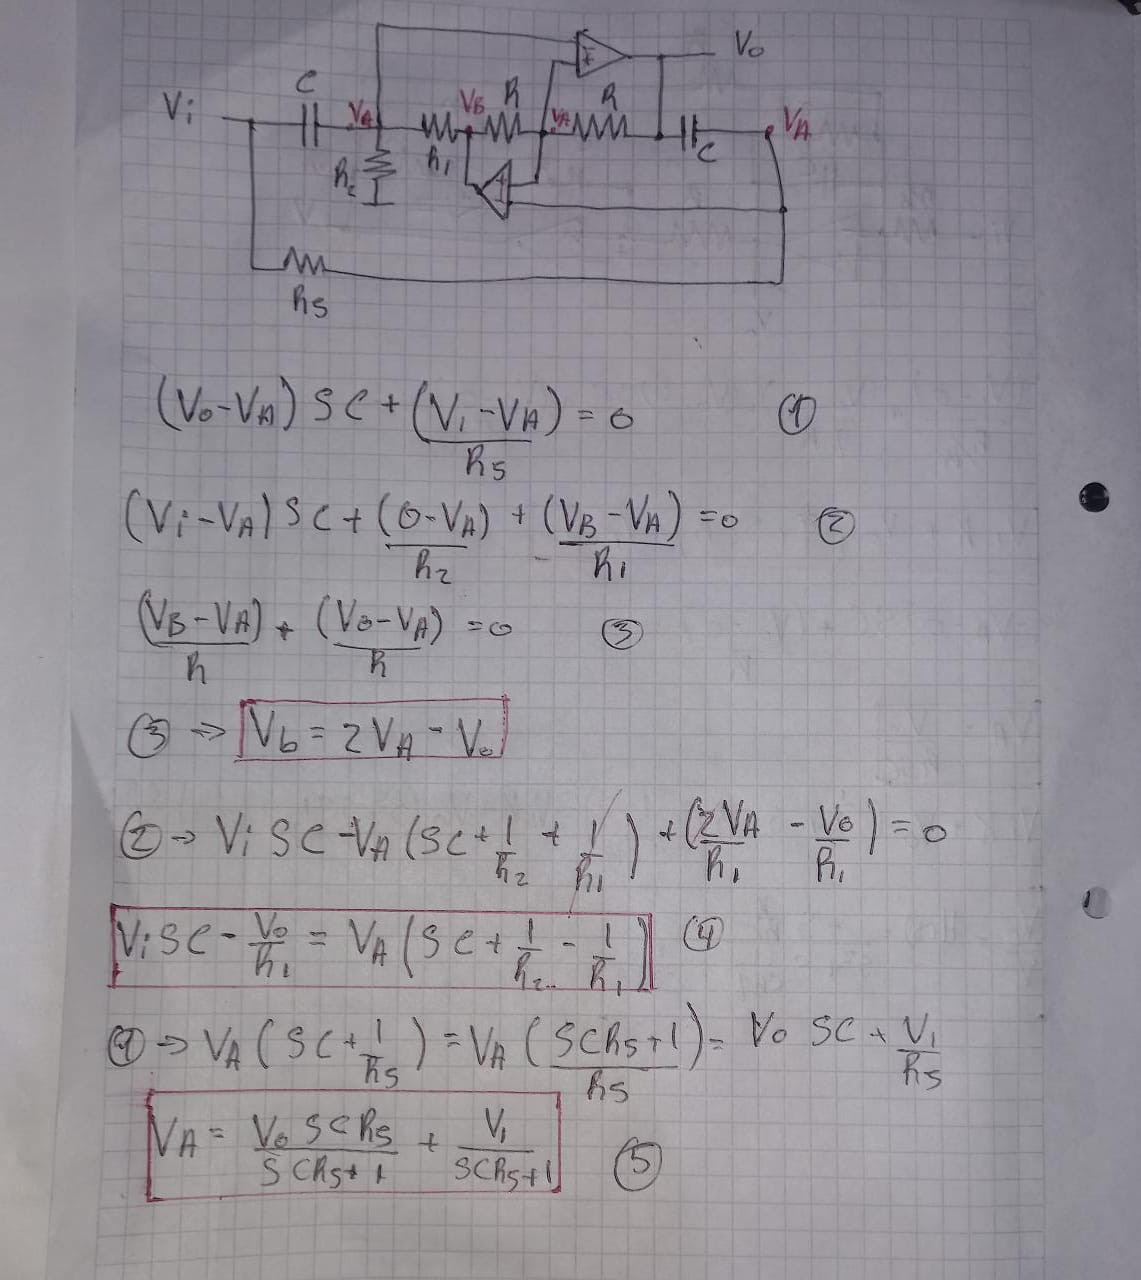 C
R
R
Vo
Vi
VA
VB
VA
VA
R2
R1
C
R5
(Vo-VA) SC + (Vi-VA)/R5 = 0 (1)
(Vi-VA) SC + (0-VA)/R2 + (VB-VA)/R1 = 0 (2)
(VB-VA)/R + (Vo-VA)/R = 0 (3)
(3) => Vb = 2VA - Vo
(2) → Vi SC - VA (SC + 1/R2 + 1/R1) + (2VA/R1 - Vo/R1) = 0
Vi SC - Vo/R1 = VA (SC + 1/R2 - 1/R1) (4)
(1) → VA (SC + 1/R5) = VA (SCR5+1)/R5 = Vo SC + Vi/R5
VA = Vo SCR5/SCR5+1 + Vi/SCR5+1 (5)